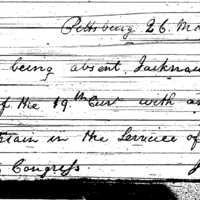 Pittsburg 26. Ma
being absent, I acknow
of the 19th Curt with a
tain in the Service of
Congress